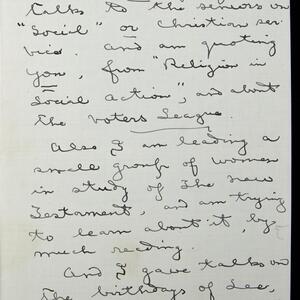 talks to the seniors on
"Social" or Christian ser-
vice. and am quoting
you, from "Religion in
Social action", and about
the voters League.
Also I am leading a
small group of women
in study of the New
Testament, and am trying
to learn about it, by
much reading.
And I gave talks on
the birthdays of Lee,